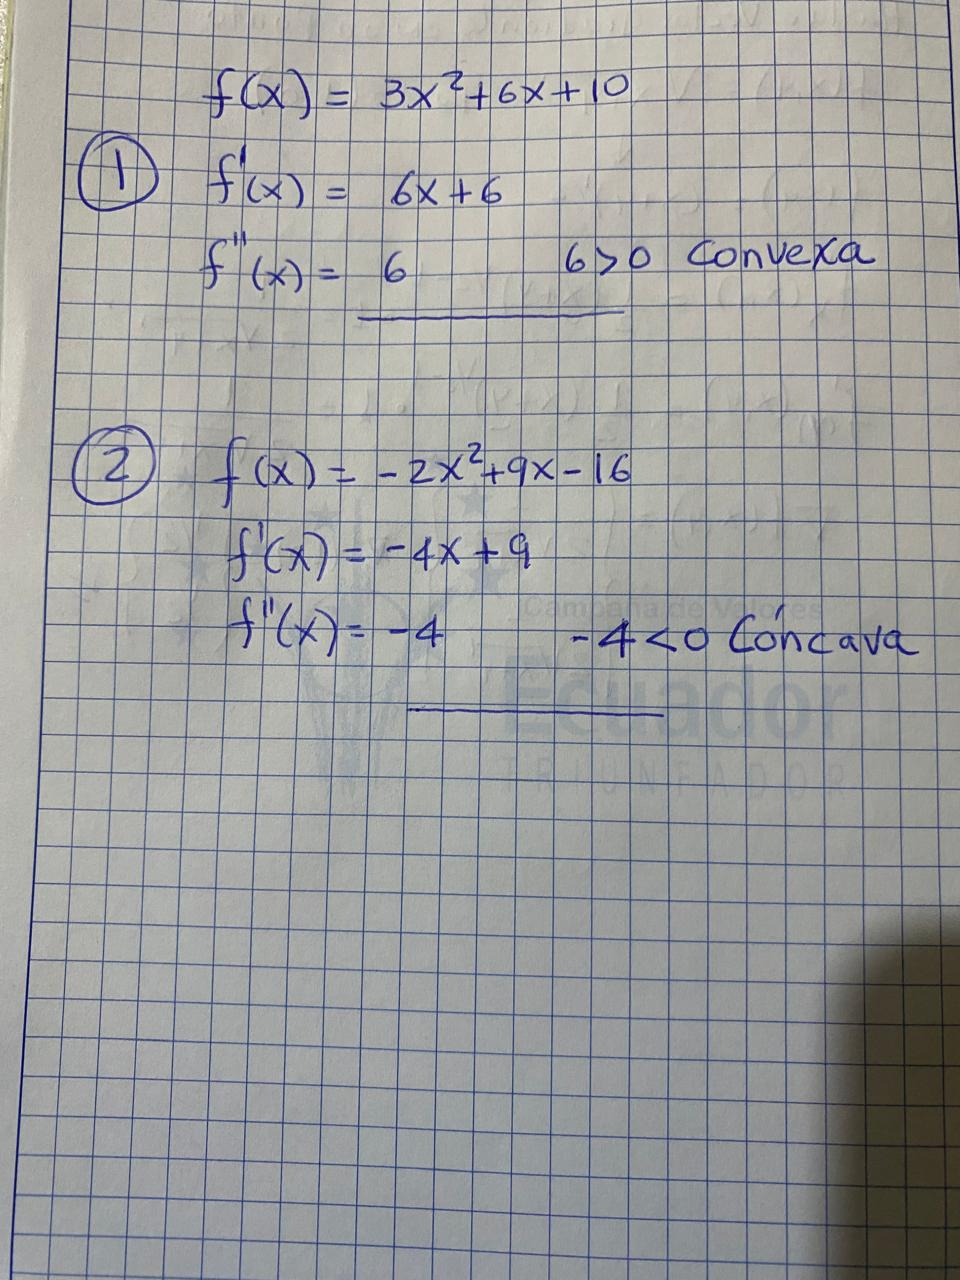 f(x) = 3x²+6x+10
① f'(x) = 6x+6
f''(x) = 6 6>0 Convexa
② f(x) = -2x²+9x-16
f'(x) = -4x+9
f''(x) = -4 -4<0 Cóncava
Campaña de Valores
Ecuador
TRIUNFADOR